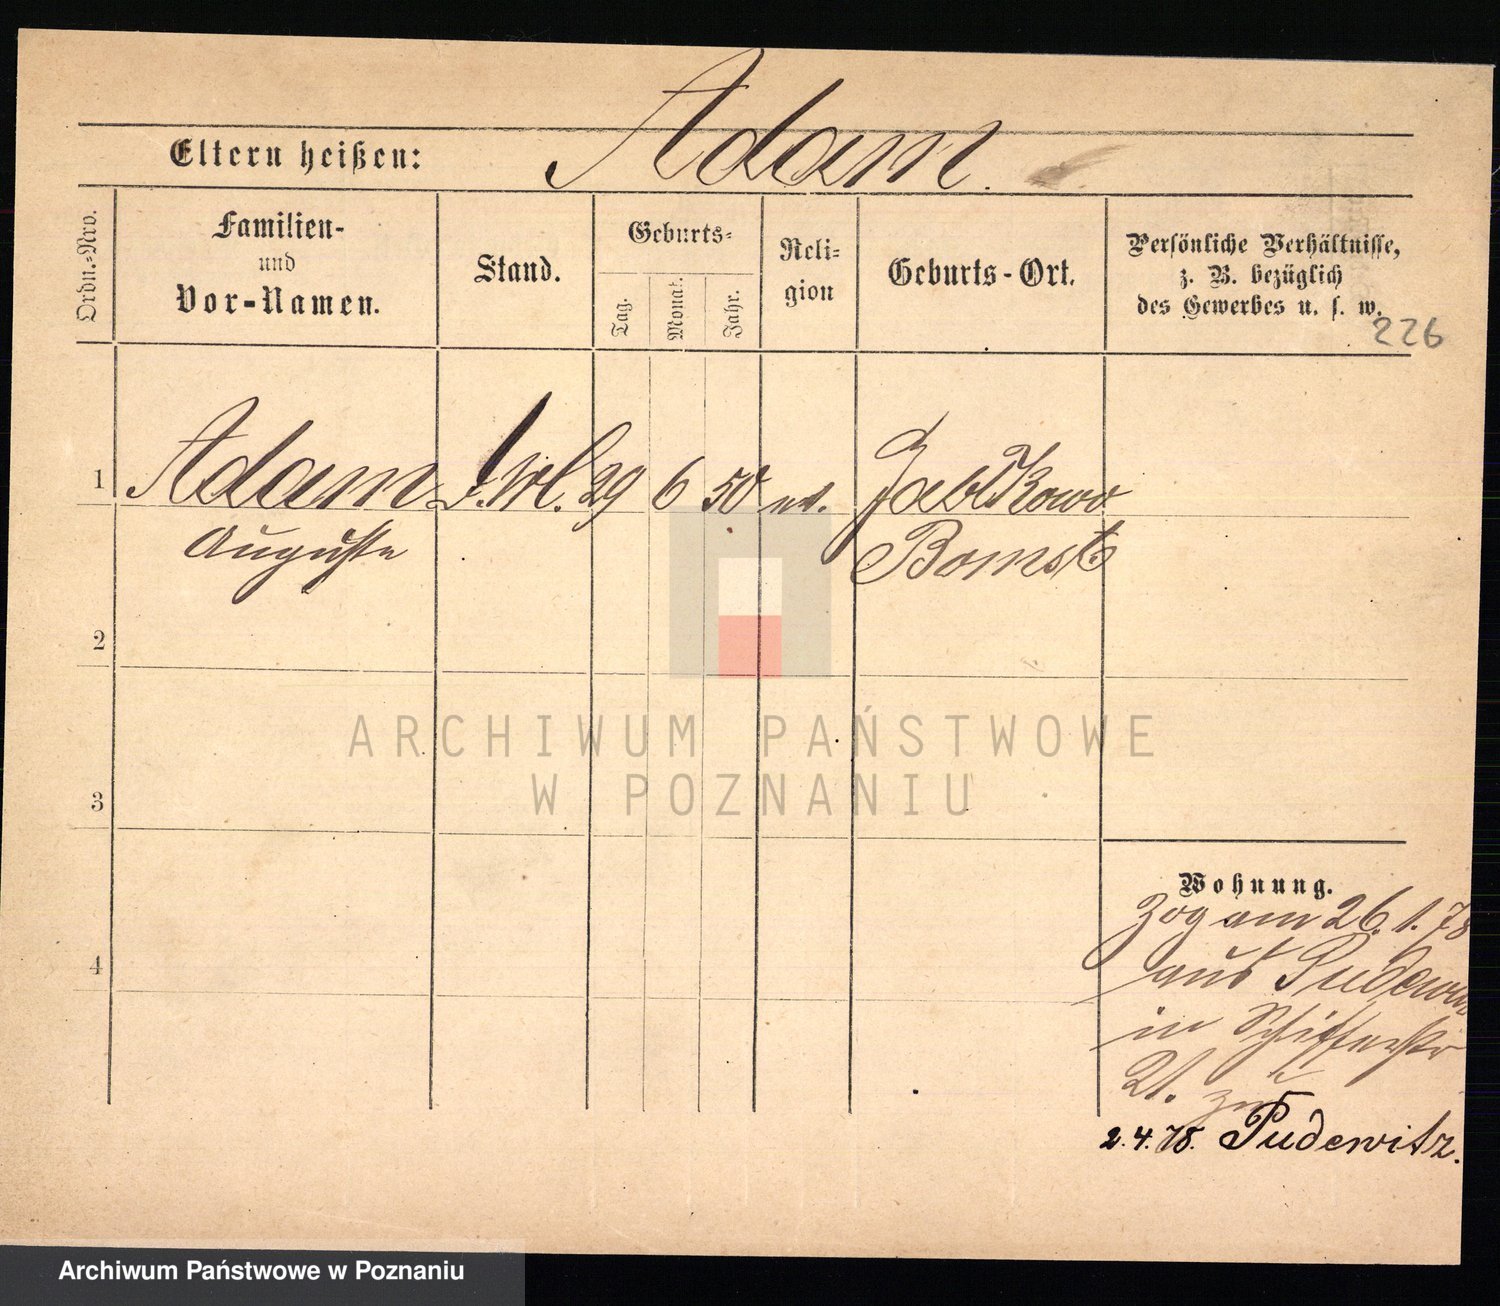 Adam.
Eltern heißen:
Ordn.-Nro.
Familien-
und
Vor-Namen.
Stand.
Geburts-
Tag.
Monat.
Jahr.
Reli-
gion
Geburts-Ort.
Persönliche Verhältnisse,
z. B. bezüglich
des Gewerbes u. s. w.
226
1 Adam 29 6 50 ev. Jablkowo
Auguste Bomst
2
3
4
ARCHIWUM PAŃSTWOWE
W POZNANIU
Wohnung.
Zog am 26.1.78
aus Pudewitz
in Schifferstr
21. zu
2.4.78. Pudewitz.
Archiwum Państwowe w Poznaniu